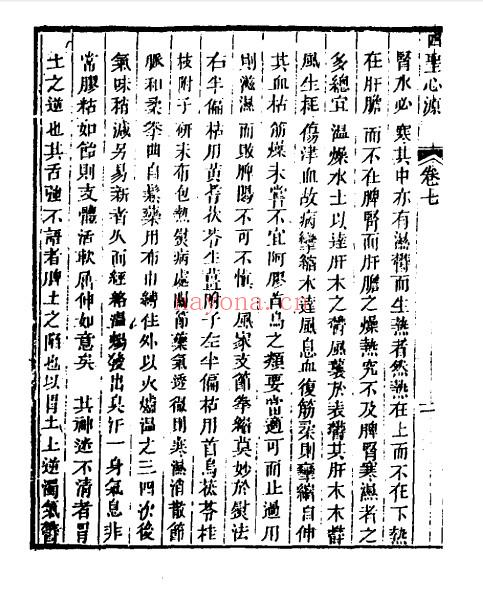 四聖心源 卷七 二
腎水必寒其中亦有濕鬱而生熱者然熱在上而不在下熱
在肝膽而不在脾腎而肝膽之燥熱究不及脾腎寒濕者之
多總宜溫燥水土以達肝木之鬱風襲於表鬱其肝木木鬱
風生耗傷津血故病攣縮木達風息血復筋柔則攣縮自伸
其血枯筋燥未嘗不宜阿膠首烏之類要當適可而止過用
則滋濕而敗脾陽不可不慎風家支節拳縮莫妙於熨法
右半偏枯用黃耆茯苓生薑附子左半偏枯用首烏茯苓桂
枝附子研末布包熱熨病處關節藥氣透徹則寒濕消散筋
脈和柔拳曲自鬆藥用布巾縛住外以火爐溫之三四次後
氣味枯減另易新者久而經絡溫暢發出臭汗一身氣息非
常膠粘如飴則支體活軟屈伸如意矣 其神迷不清者胃
土之逆也其舌強不語者脾土之陷也以胃土上逆濁氣鬱
nayona.cn